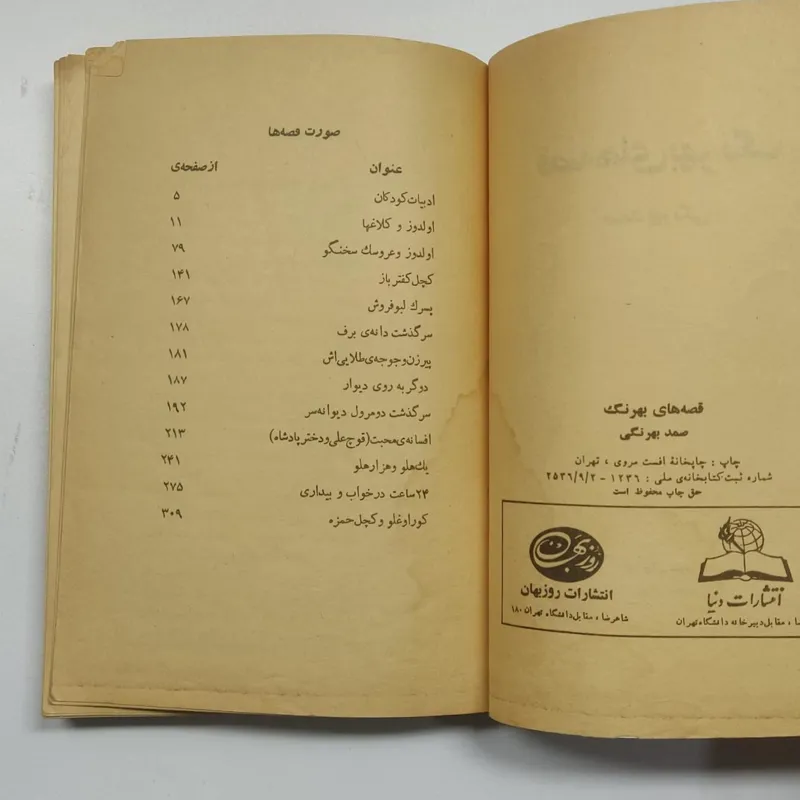 قصه‌های بهرنگ
صمد بهرنگی
چاپ : چاپخانهٔ افست مروی ، تهران
شماره ثبت کتابخانه‌ی ملی : ۱۲۳۶ - ۲۵۳۶/۹/۲
حق چاپ محفوظ است
انتشارات دنیا
مقابل دبیرخانه دانشگاه تهران
روزبهان
انتشارات روزبهان
شاهرضا ، مقابل دانشگاه تهران ۱۸۰
صورت قصه‌ها
عنوان از صفحه‌ی
ادبیات کودکان ۵
اولدوز و کلاغها ۱۱
اولدوز و عروسک سخنگو ۷۹
کچل کفتر باز ۱۴۱
پسرک لبوفروش ۱۶۷
سرگذشت دانه‌ی برف ۱۷۸
پیرزن و جوجه‌ی طلایی‌اش ۱۸۱
دو گربه روی دیوار ۱۸۷
سرگذشت دومرول دیوانه‌سر ۱۹۲
افسانه‌ی محبت (قوچ علی و دختر پادشاه) ۲۱۳
یک هلو و هزار هلو ۲۴۱
۲۴ ساعت در خواب و بیداری ۲۷۵
کوراوغلو و کچل حمزه ۳۰۹